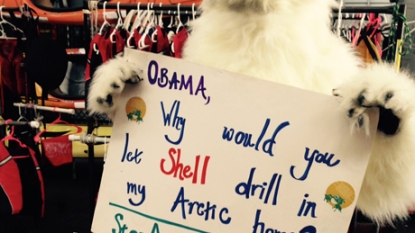 OBAMA,
Why would you
let Shell drill in
my Arctic home?